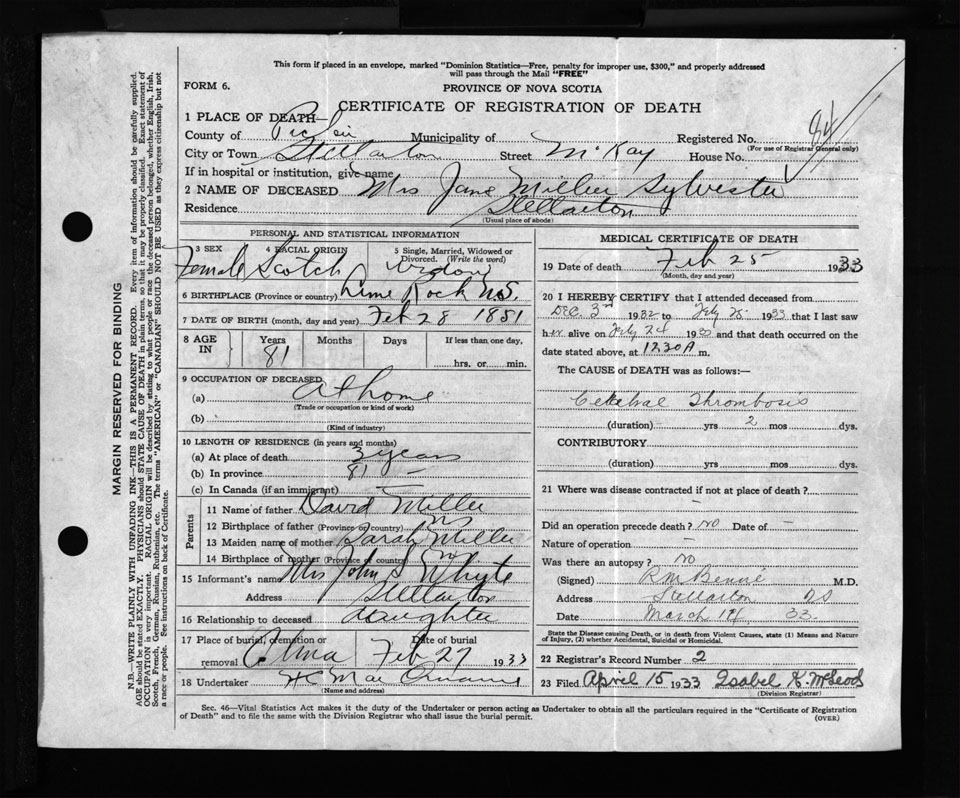 This form if placed in an envelope, marked "Dominion Statistics—Free, penalty for improper use, $300," and properly addressed
will pass through the Mail "FREE"
FORM 6.
PROVINCE OF NOVA SCOTIA
CERTIFICATE OF REGISTRATION OF DEATH
1 PLACE OF DEATH—
County of Pictou Municipality of Registered No. 84
(For use of Registrar General only)
City or Town Stellarton Street McKay House No.
If in hospital or institution, give name
2 NAME OF DECEASED Mrs Jane Miller Sylvester
Residence Stellarton
(Usual place of abode)
PERSONAL AND STATISTICAL INFORMATION
3 SEX 4 RACIAL ORIGIN 5 Single, Married, Widowed or Divorced. (Write the word)
Female Scotch Widow
6 BIRTHPLACE (Province or country) Lime Rock N.S.
7 DATE OF BIRTH (month, day and year) Feb 28 1851
8 AGE IN Years Months Days If less than one day,
81 hrs. or min.
9 OCCUPATION OF DECEASED
(a) At home
(Trade or occupation or kind of work)
(b)
(Kind of industry)
10 LENGTH OF RESIDENCE (in years and months)
(a) At place of death 3 years
(b) In province 81 —
(c) In Canada (if an immigrant) —
Parents
11 Name of father David Miller
12 Birthplace of father (Province or country) NS
13 Maiden name of mother Sarah Miller
14 Birthplace of mother (Province or country)
15 Informant's name Mrs John S Whyte
Address Stellarton
16 Relationship to deceased daughter
17 Place of burial, cremation or removal Date of burial
Alma Feb 27 1933
18 Undertaker
(Name and address)
MEDICAL CERTIFICATE OF DEATH
19 Date of death Feb 25 1933
(Month, day and year)
20 I HEREBY CERTIFY that I attended deceased from
Dec. 3rd 1932 to Feby 25 1933 that I last saw
her alive on Feby 24 1933 and that death occurred on the
date stated above, at 12.30 A m.
The CAUSE OF DEATH was as follows:—
Cerebral Thrombosis
(duration) yrs 2 mos dys.
CONTRIBUTORY
(duration) yrs mos dys.
21 Where was disease contracted if not at place of death?
Did an operation precede death? No Date of —
Nature of operation —
Was there an autopsy? No
(Signed) R M Benvie M.D.
Address Stellarton NS
Date March 1st 33.
State the Disease causing Death, or in death from Violent Causes, state (1) Means and Nature
of Injury, (2) whether Accidental, Suicidal or Homicidal.
22 Registrar's Record Number 2
23 Filed April 15 1933 Isabel K. McLeod
(Division Registrar)
Sec. 46—Vital Statistics Act makes it the duty of the Undertaker or person acting as Undertaker to obtain all the particulars required in the "Certificate of Registration
of Death" and to file the same with the Division Registrar who shall issue the burial permit.
(OVER)
MARGIN RESERVED FOR BINDING
N.B. WRITE PLAINLY WITH UNFADING INK—THIS IS A PERMANENT RECORD. Every item of information should be carefully supplied.
AGE should be stated EXACTLY. PHYSICIANS should STATE CAUSE OF DEATH in plain terms, so that it may be properly classified. Exact statement of
OCCUPATION is very important. RACIAL ORIGIN will be described by stating to what people or race the deceased person belonged, whether English, Irish,
Scotch, French, German, Russian, Ruthenian, etc. The terms "AMERICAN" or "CANADIAN" SHOULD NOT BE USED as they express citizenship but not
a race or people. See instructions on back of Certificate.